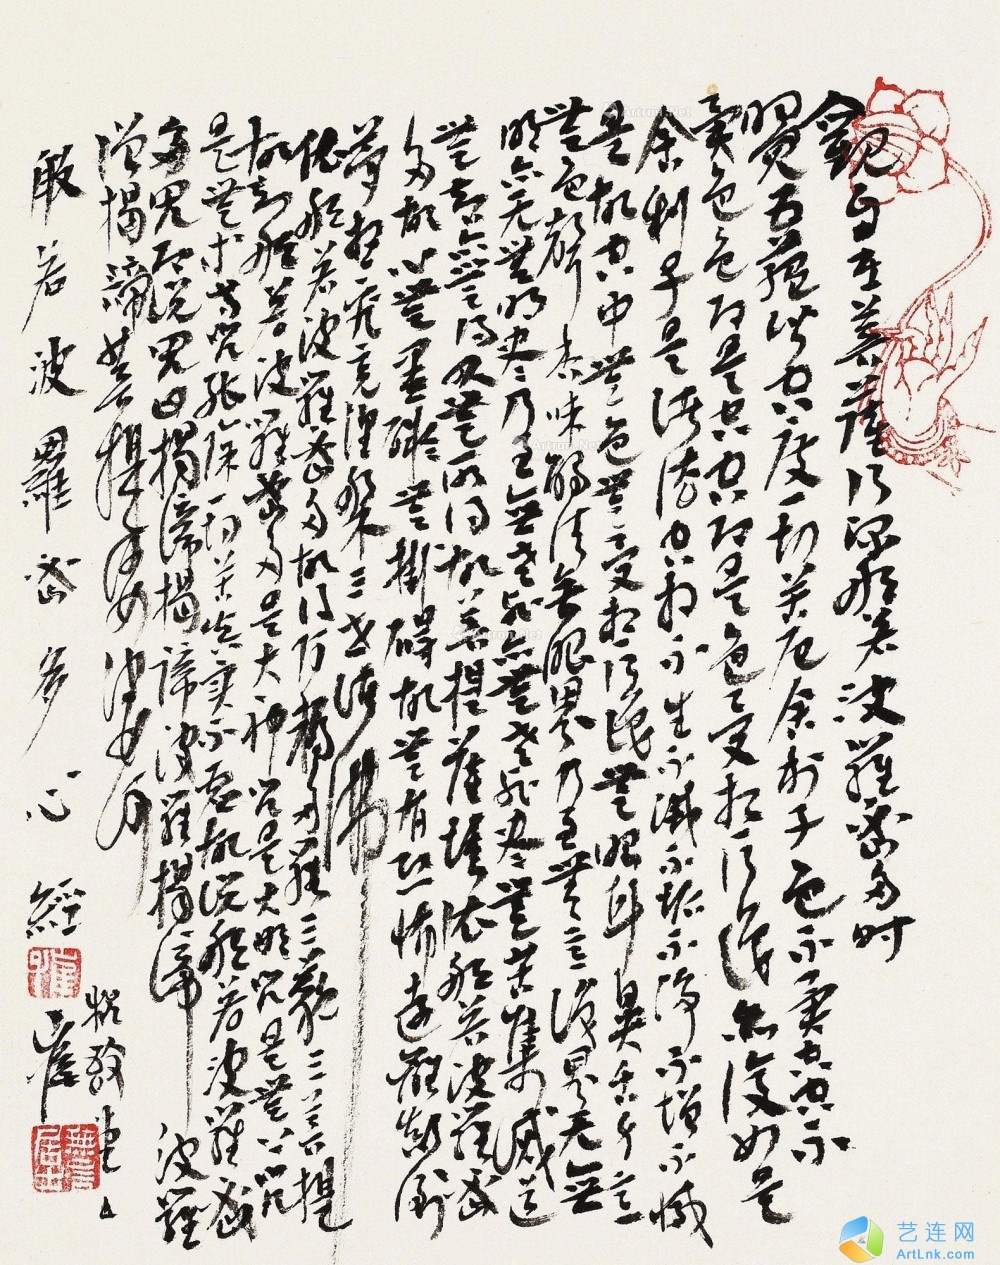 觀自在菩薩行深般若波羅蜜多時
照見五蘊皆空度一切苦厄舍利子色不異空空不
異色色即是空空即是色受想行識亦復如是
舍利子是諸法空相不生不滅不垢不淨不增不減
是故空中無色無受想行識無眼耳鼻舌身意
無色聲香味觸法無眼界乃至無意識界无無
明亦无無明盡乃至無老死亦無老死盡無苦集滅道
無智亦無得以無所得故菩提薩埵依般若波羅蜜
多故心無罣礙無罣礙故無有恐怖遠離顛倒
夢想究竟涅槃三世諸佛
依般若波羅蜜多故得阿耨多羅三藐三菩提
故知般若波羅蜜多是大神咒是大明咒是無上咒
是無等等咒能除一切苦真實不虛故說般若波羅蜜
多咒即說咒曰揭諦揭諦波羅揭諦 波羅
僧揭諦菩提薩婆訶
般若波羅蜜多心經
艺连网
ArtLnk.com
Artron.Net